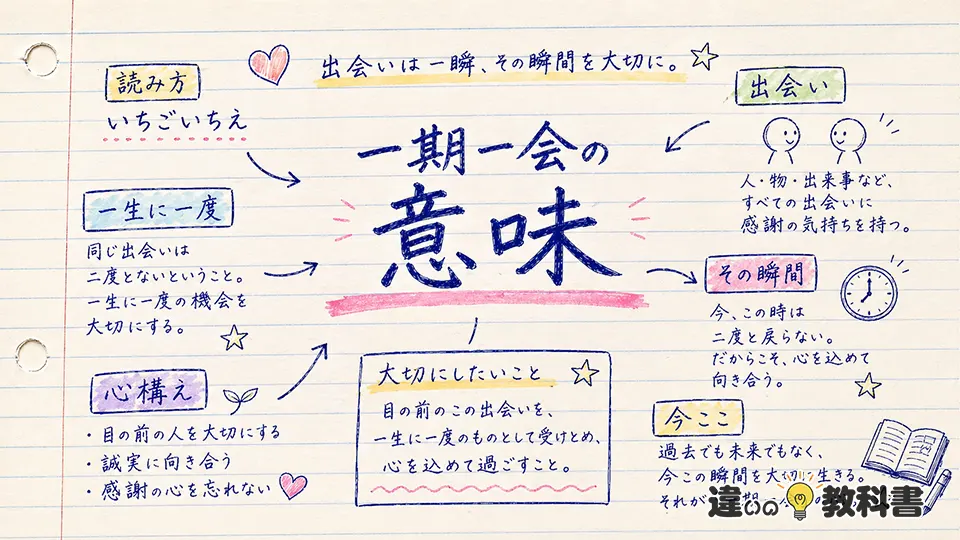 出会いは一瞬、その瞬間を大切に。
一期一会の
意味
読み方
いちごいちえ
一生に一度
同じ出会いは
二度とないということ。
一生に一度の機会を
大切にする。
心構え
・目の前の人を大切にする
・誠実に向き合う
・感謝の心を忘れない
大切にしたいこと
目の前のこの出会いを、
一生に一度のものとして受けとめ、
心を込めて過ごすこと。
出会い
人・物・出来事など、
すべての出会いに
感謝の気持ちを持つ。
その瞬間
今、この時は
二度と戻らない。
だからこそ、心を込めて
向き合う。
今ここ
過去でも未来でもなく、
今この瞬間を大切に生きる。
それが
違いの教科書